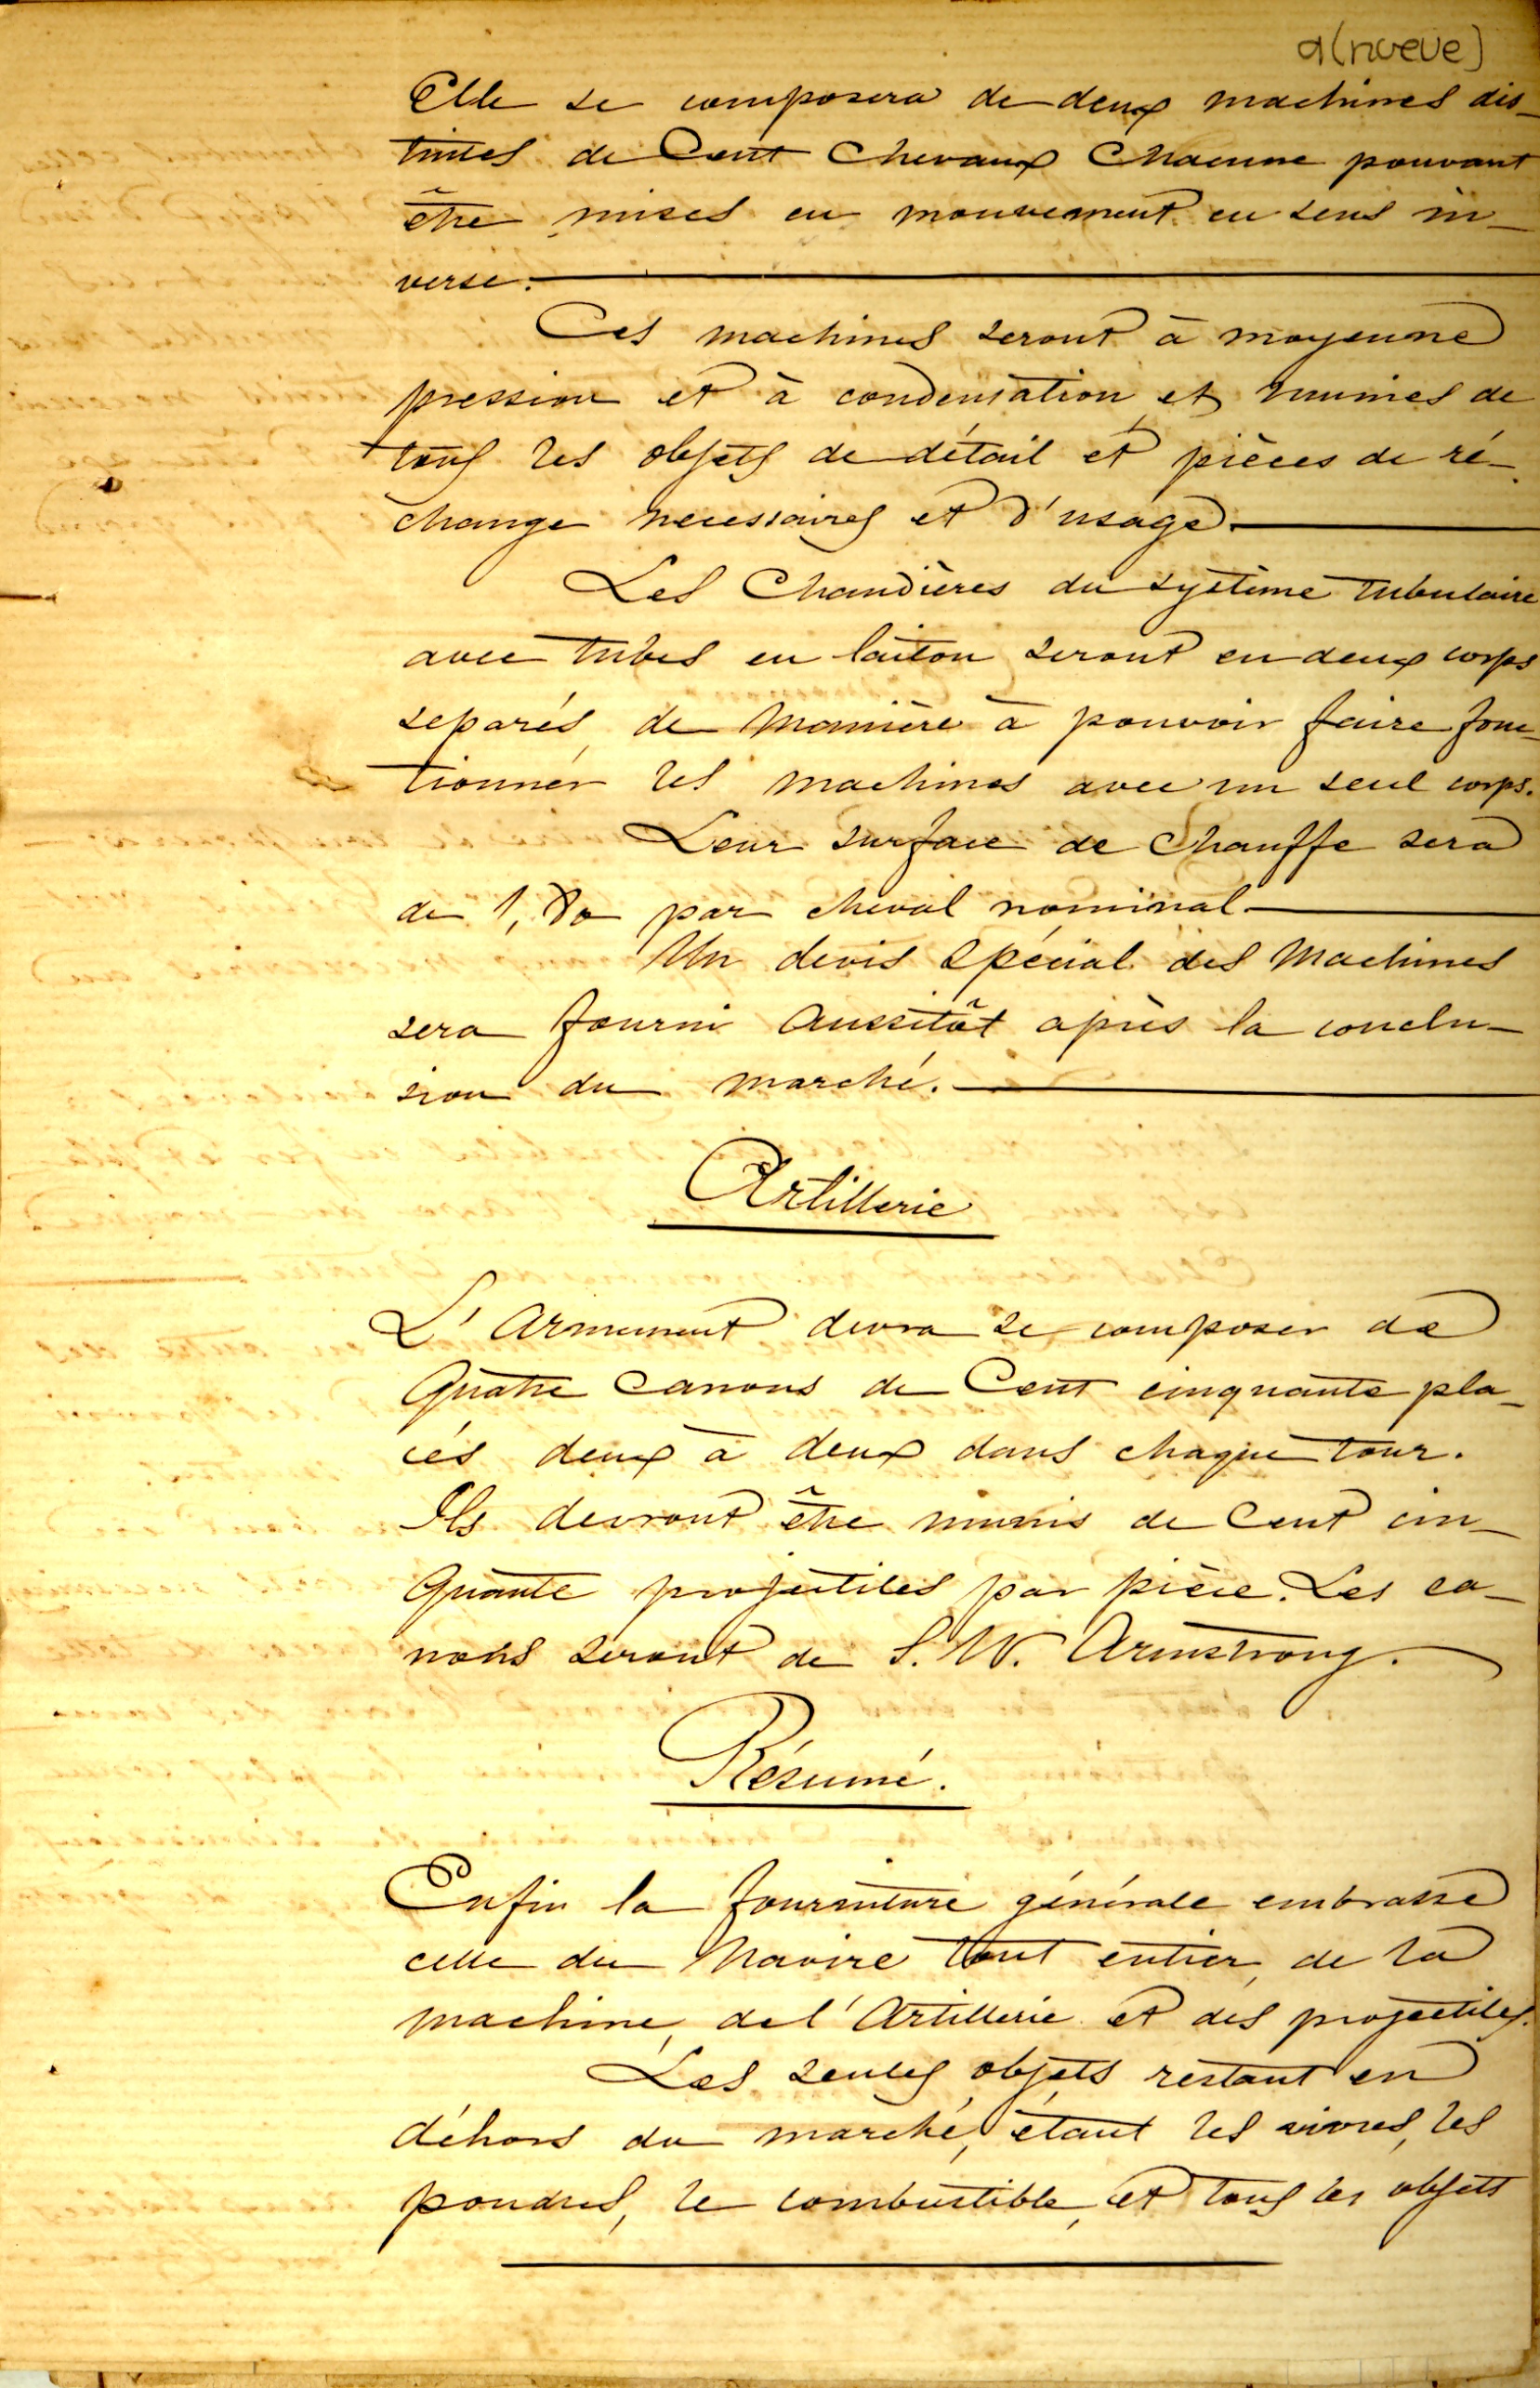 9 (nueve)
Elle se composera de deux machines dis-
tinctes de Cent Chevaux Chacune pouvant
être mises en mouvement en sens in-
verse.
Ces machines seront à moyenne
pression et à condensation et munies de
tous les objets de détail et pièces de ré-
change necessaires et d'usage.
Les Chaudières du système tubulaire
avec tubes en laiton seront en deux corps
separés, de manière à pouvoir faire fonc-
tionner les machines avec un seul corps.
Leur surface de Chauffe sera
de 1,80 par cheval nominal
Un devis spécial des Machines
sera fourni Aussitôt après la conclu-
sion du marché.
Artillerie
L'Armement devra se composer de
Quatre Canons de Cent cinquante pla-
cés deux à deux dans chaque tour.
Ils devront être munis de Cent cin-
quante projectiles par pièce. Les ca-
nons seront de S. W. Armstrong.
Résumé.
Enfin la fourniture générale embrasse
celle du Navire tout entier, de la
machine, de l'Artillerie et des projectiles.
Les seules objets restant en
déhors du marché, étant les vivres, les
poudres, le combustible, et tous les objets